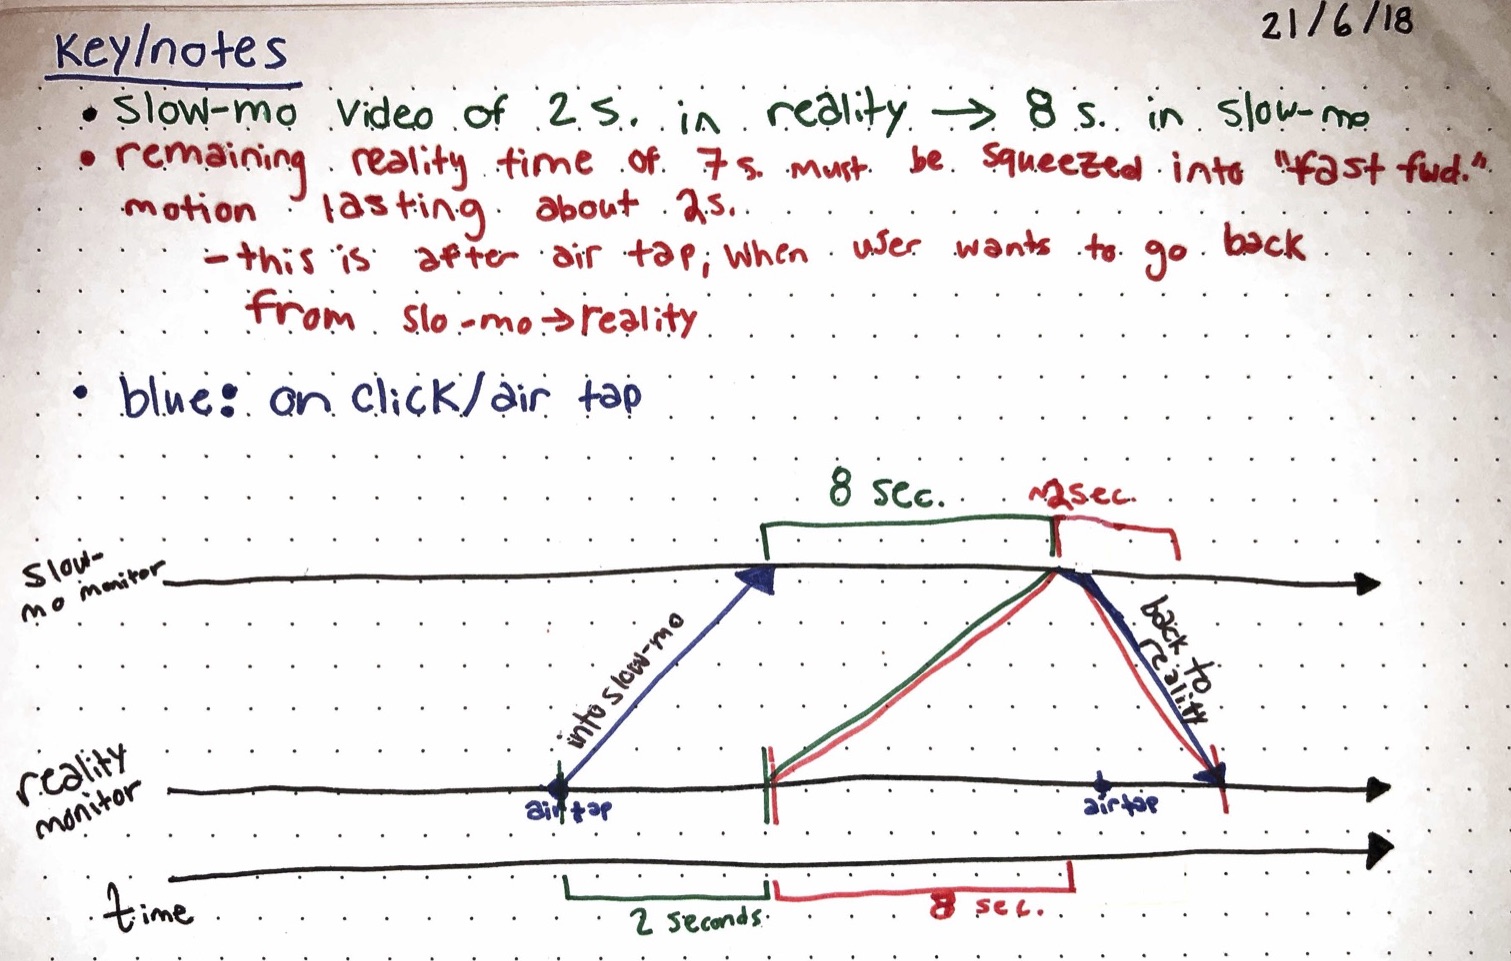 21/6/18
Key/notes
• slow-mo video of 2 s. in reality → 8 s. in slow-mo
• remaining reality time of 7 s. must be squeezed into "fast fwd."
motion lasting about 2s.
- this is after air tap, when user wants to go back
from slo-mo → reality
• blue: on click/air tap
8 sec.
~2 sec.
slow-
mo monitor
into slow-mo
back to
reality
reality
monitor
air tap
air tap
time
2 seconds
8 sec.